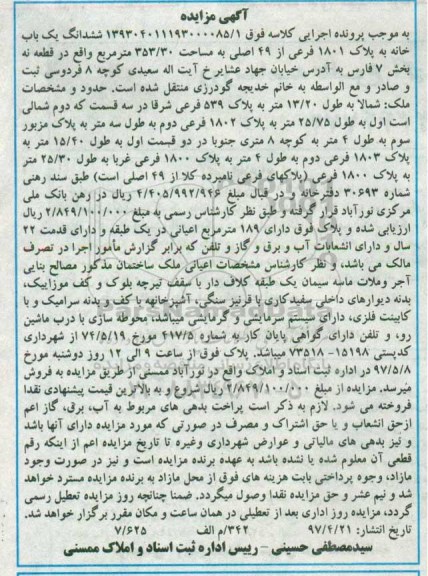 آگهی مزایده
به موجب پرونده اجرایی کلاسه فوق ۱۳۹۳۰۴۰۱۱۱۹۳۰۰۰۰۸۵/۱ ششدانگ یک باب
خانه به پلاک ۱۸۰۱ فرعی از ۴۹ اصلی به مساحت ۳۵۳/۳۰ مترمربع واقع در قطعه نه
بخش ۷ فارس به آدرس خیابان جهاد عشایر خ آیت اله سعیدی کوچه ۸ فردوسی ثبت
و صادر و مع الواسطه به خانم خدیجه گودرزی منتقل شده است. حدود و مشخصات
ملک: شمالا به طول ۱۳/۲۰ متر به پلاک ۵۳۹ فرعی شرقا در سه قسمت که دوم شمالی
است اول به طول ۲۵/۷۵ متر به پلاک ۱۸۰۲ فرعی دوم به طول سه متر به پلاک مزبور
سوم به طول ۴ متر به کوچه ۸ متری جنوبا در دو قسمت اول به طول ۱۵/۴۰ متر به
پلاک ۱۸۰۳ فرعی دوم به طول ۴ متر به پلاک ۱۸۰۰ فرعی غربا به طول ۲۵/۳۰ متر
به پلاک ۱۸۰۰ فرعی (پلاکهای فرعی نامبرده کلا از ۴۹ اصلی است) طبق سند رهنی
شماره ۳۰۶۹۳ دفترخانه در قبال مبلغ ۴/۴۰۵/۹۹۲/۹۴۶ ریال در رهن بانک ملی
مرکزی نورآباد قرار گرفته و طبق نظر کارشناس رسمی به مبلغ ۲/۸۴۹/۱۰۰/۰۰۰ ریال
ارزیابی شده و پلاک فوق دارای ۱۸۹ مترمربع اعیانی در یک طبقه و دارای قدمت ۲۲
سال و دارای انشعابات آب و برق و گاز و تلفن که برابر گزارش مأمور اجرا در تصرف
مالک می باشد، و نظر کارشناس مشخصات اعیانی ملک ساختمان مذکور مصالح بنایی
آجر وملات ماسه سیمان یک طبقه کلاف دار با سقف تیرچه بلوک و کف موزاییک،
بدنه دیوارهای داخلی سفیدکاری با قرنیز سنگی، آشپزخانه با کف و بدنه سرامیک و با
کابینت فلزی، دارای سیستم سرمایشی و گرمایشی میباشد، محوطه سازی با درب ماشین
رو، و تلفن دارای گواهی پایان کار به شماره ۴۱۷/۵ مورخ ۷۴/۵/۱۹ از شهرداری
کدپستی ۱۵۱۹۸- ۷۳۵۱۸ میباشد. پلاک فوق از ساعت ۹ الی ۱۲ روز دوشنبه مورخ
۹۷/۵/۸ در اداره ثبت اسناد و املاک واقع در نورآباد ممسنی از طریق مزایده به فروش
میرسد. مزایده از مبلغ ۲/۸۴۹/۱۰۰/۰۰۰ ریال شروع و به بالاترین قیمت پیشنهادی نقدا
فروخته می شود. لازم به ذکر است پراخت بدهی های مربوط به آب، برق، گاز اعم
ازحق انشعاب و یا حق اشتراک و مصرف در صورتی که مورد مزایده دارای آنها باشد
و نیز بدهی های مالیاتی و عوارض شهرداری وغیره تا تاریخ مزایده اعم از اینکه رقم
قطعی آن معلوم شده یا نشده باشد به عهده برنده مزایده است و نیز در صورت وجود
مازاد، وجوه پرداختی بابت هزینه های فوق از محل مازاد به برنده مزایده مسترد خواهد
شد و نیم عشر و حق مزایده نقدا وصول میگردد. ضمنا چنانچه روز مزایده تعطیل رسمی
گردد، مزایده روز اداری بعد از تعطیلی در همان ساعت و مکان مقرر برگزار خواهد شد.
تاریخ انتشار: ۹۷/۴/۲۱ ۳۴۲/م الف ۷/۶۲۵
سیدمصطفی حسینی – رییس اداره ثبت اسناد و املاک ممسنی